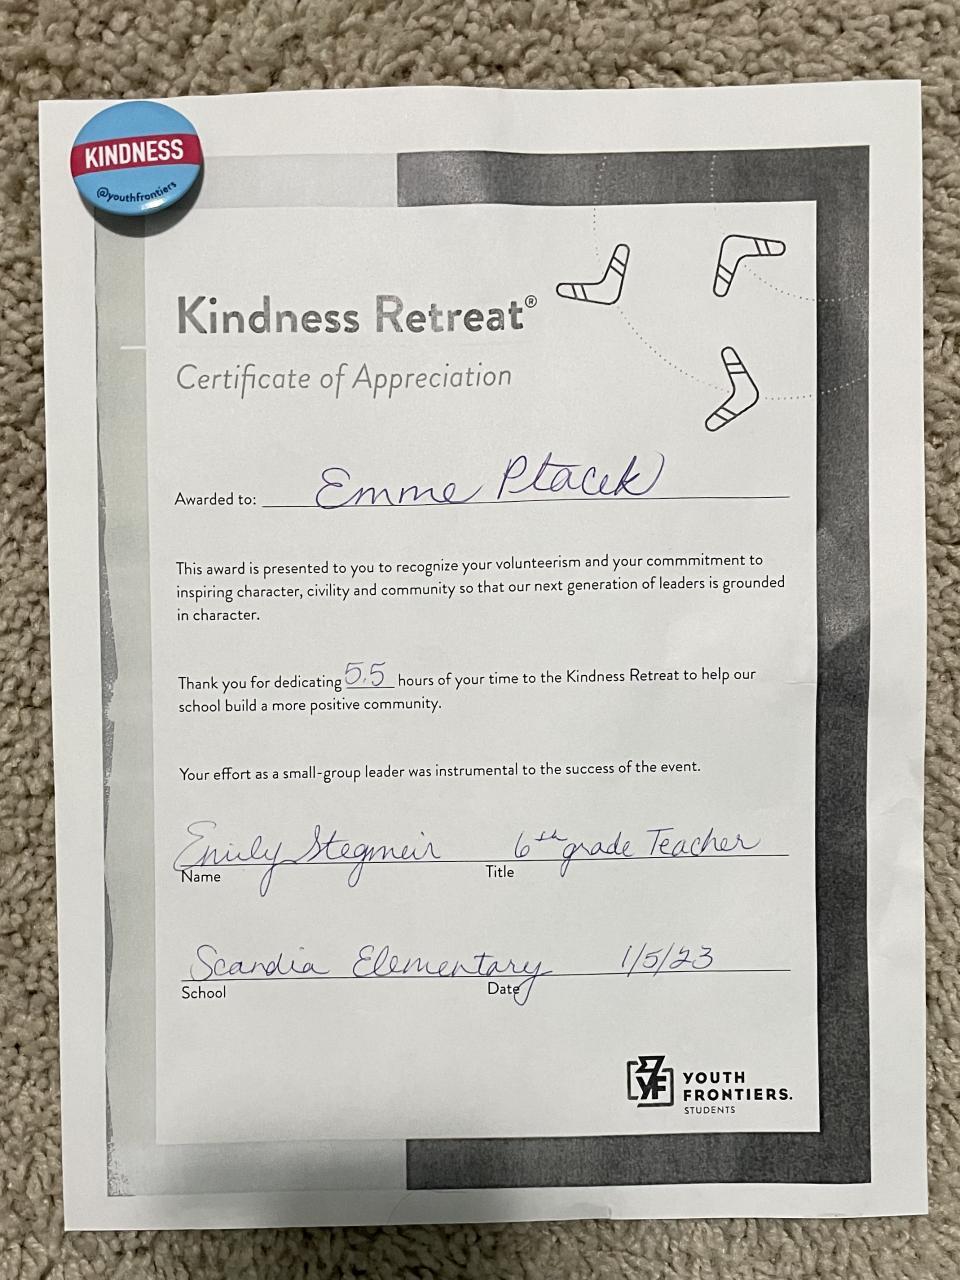 KINDNESS
@youthfrontiers
Kindness Retreat®
Certificate of Appreciation
Awarded to: Emme Ptacek
This award is presented to you to recognize your volunteerism and your commmitment to
inspiring character, civility and community so that our next generation of leaders is grounded
in character.
Thank you for dedicating 5.5 hours of your time to the Kindness Retreat to help our
school build a more positive community.
Your effort as a small-group leader was instrumental to the success of the event.
Emily Stegmeir 6th grade Teacher
Name Title
Scandia Elementary 1/5/23
School Date
YF YOUTH
FRONTIERS.
STUDENTS